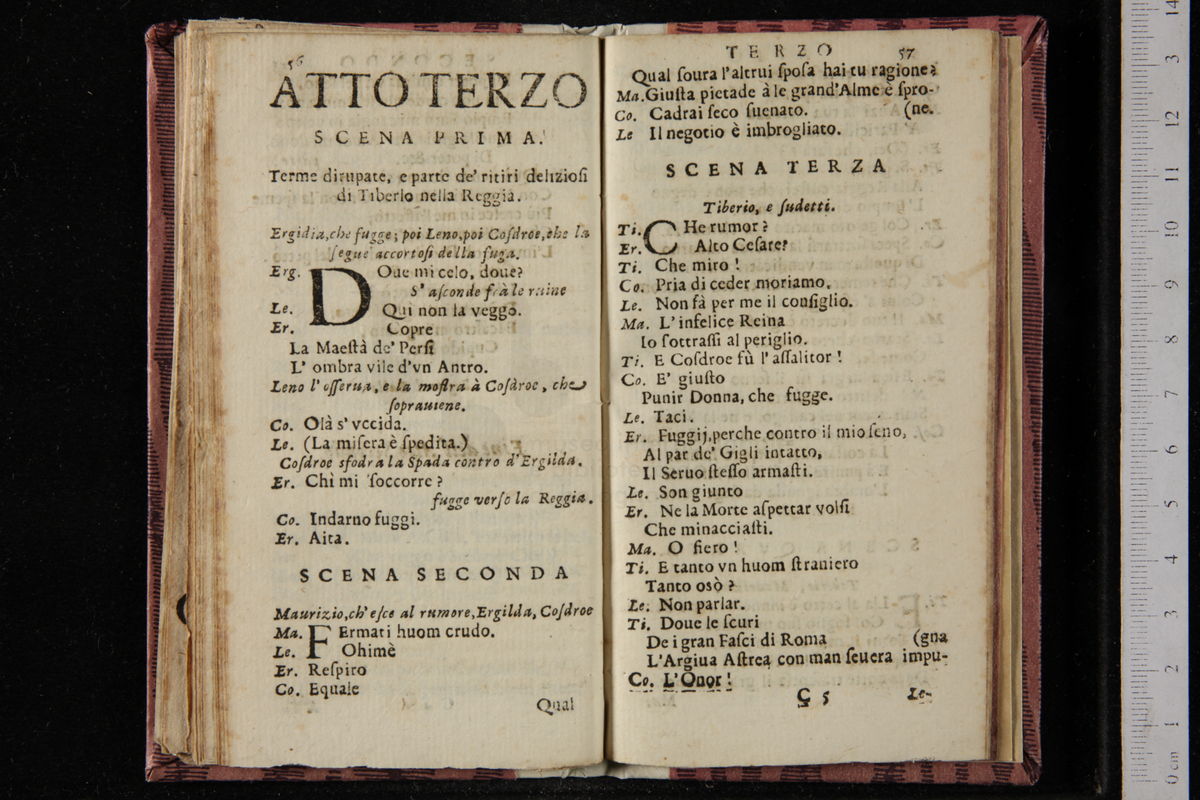 56
ATTO TERZO
SCENA PRIMA.
Terme dirupate, e parte de' ritiri deliziosi
di Tiberio nella Reggia.
Ergidia, che fugge; poi Leno, poi Cosdroe, che la
segue accortosi della fuga.
Erg. DOue mi celo, doue?
S' asconde frà le ruine
Le. Qui non la veggo.
Er. Copre
La Maestà de' Persi
L' ombra vile d'vn Antro.
Leno l' osserua, e la mostra à Cosdroe, che
soprauiene.
Co. Olà s' vccida.
Le. (La misera è spedita.)
Cosdroe sfodra la Spada contro d'Ergilda.
Er. Chi mi soccorre?
fugge verso la Reggia.
Co. Indarno fuggi.
Er. Aita.
SCENA SECONDA
Maurizio, ch' esce al rumore, Ergilda, Cosdroe
Ma. FErmati huom crudo.
Le. Ohimè
Er. Respiro
Co. Equale
Qual
TERZO 57
Qual soura l'altrui sposa hai tu ragione?
Ma. Giusta pietade à le grand'Alme è spro-
Co. Cadrai seco suenato. (ne.
Le Il negotio è imbrogliato.
SCENA TERZA
Tiberio, e sudetti.
Ti. CHe rumor?
Er. Alto Cesare?
Ti. Che miro!
Co. Pria di ceder moriamo.
Le. Non fà per me il consiglio.
Ma. L' infelice Reina
Io sottrassi al periglio.
Ti. E Cosdroe fù l' assalitor!
Co. E' giusto
Punir Donna, che fugge.
Le. Taci.
Er. Fuggij, perche contro il mio seno,
Al par de' Gigli intatto,
Il Seruo stesso armasti.
Le. Son giunto
Er. Ne la Morte aspettar volsi
Che minacciasti.
Ma. O fiero!
Ti. E tanto vn huom straniero
Tanto osò?
Le. Non parlar.
Ti. Doue le scuri
De i gran Fasci di Roma (gna
L'Argiua Astrea con man seuera impu-
Co. L'Onor!
C 5 Le-
14
13
12
11
10
9
8
7
6
5
4
3
2
1
0 cm